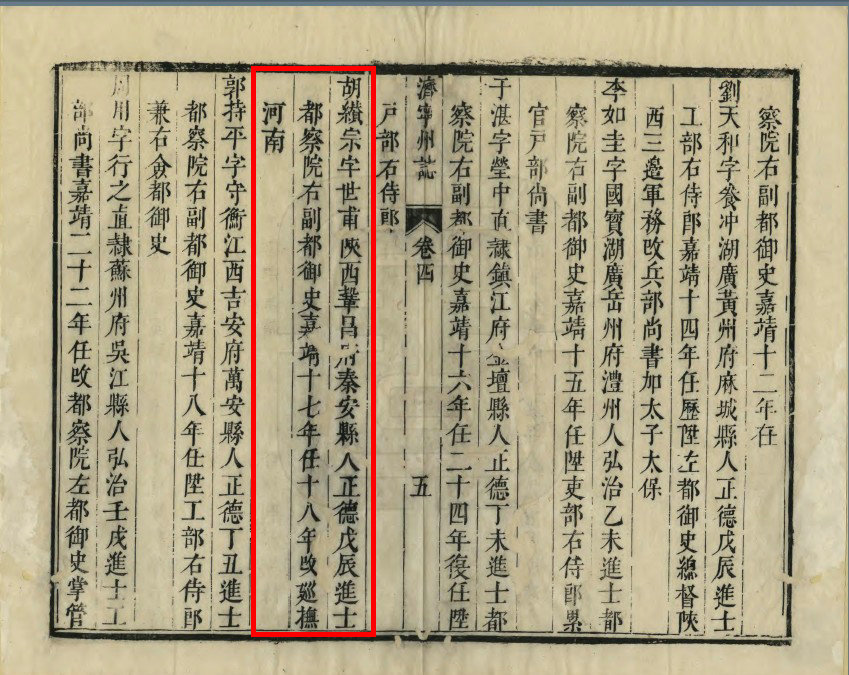 察院右副都御史嘉靖十二年任
劉天和字養冲湖廣黃州府麻城縣人正德戊辰進士
工部右侍郎嘉靖十四年任歷陞左都御史總督陝
西三邊軍務改兵部尚書加太子太保
李如圭字國寶湖廣岳州府澧州人弘治乙未進士都
察院右副都御史嘉靖十五年任陞吏部右侍郎累
官戶部尚書
于湛字瑩中直隸鎮江府金壇縣人正德丁未進士都
察院右副都御史嘉靖十六年任二十四年復任陞
濟寧州誌 卷四 五
戶部右侍郎
胡纘宗字世甫陝西鞏昌府秦安縣人正德戊辰進士
都察院右副都御史嘉靖十七年任十八年改廵撫
河南
郭持平字守衡江西吉安府萬安縣人正德丁丑進士
都察院右副都御史嘉靖十八年任陞工部右侍郎
兼右僉都御史
周用字行之直隸蘇州府吳江縣人弘治壬戌進士工
部尚書嘉靖二十二年任改都察院左都御史掌管